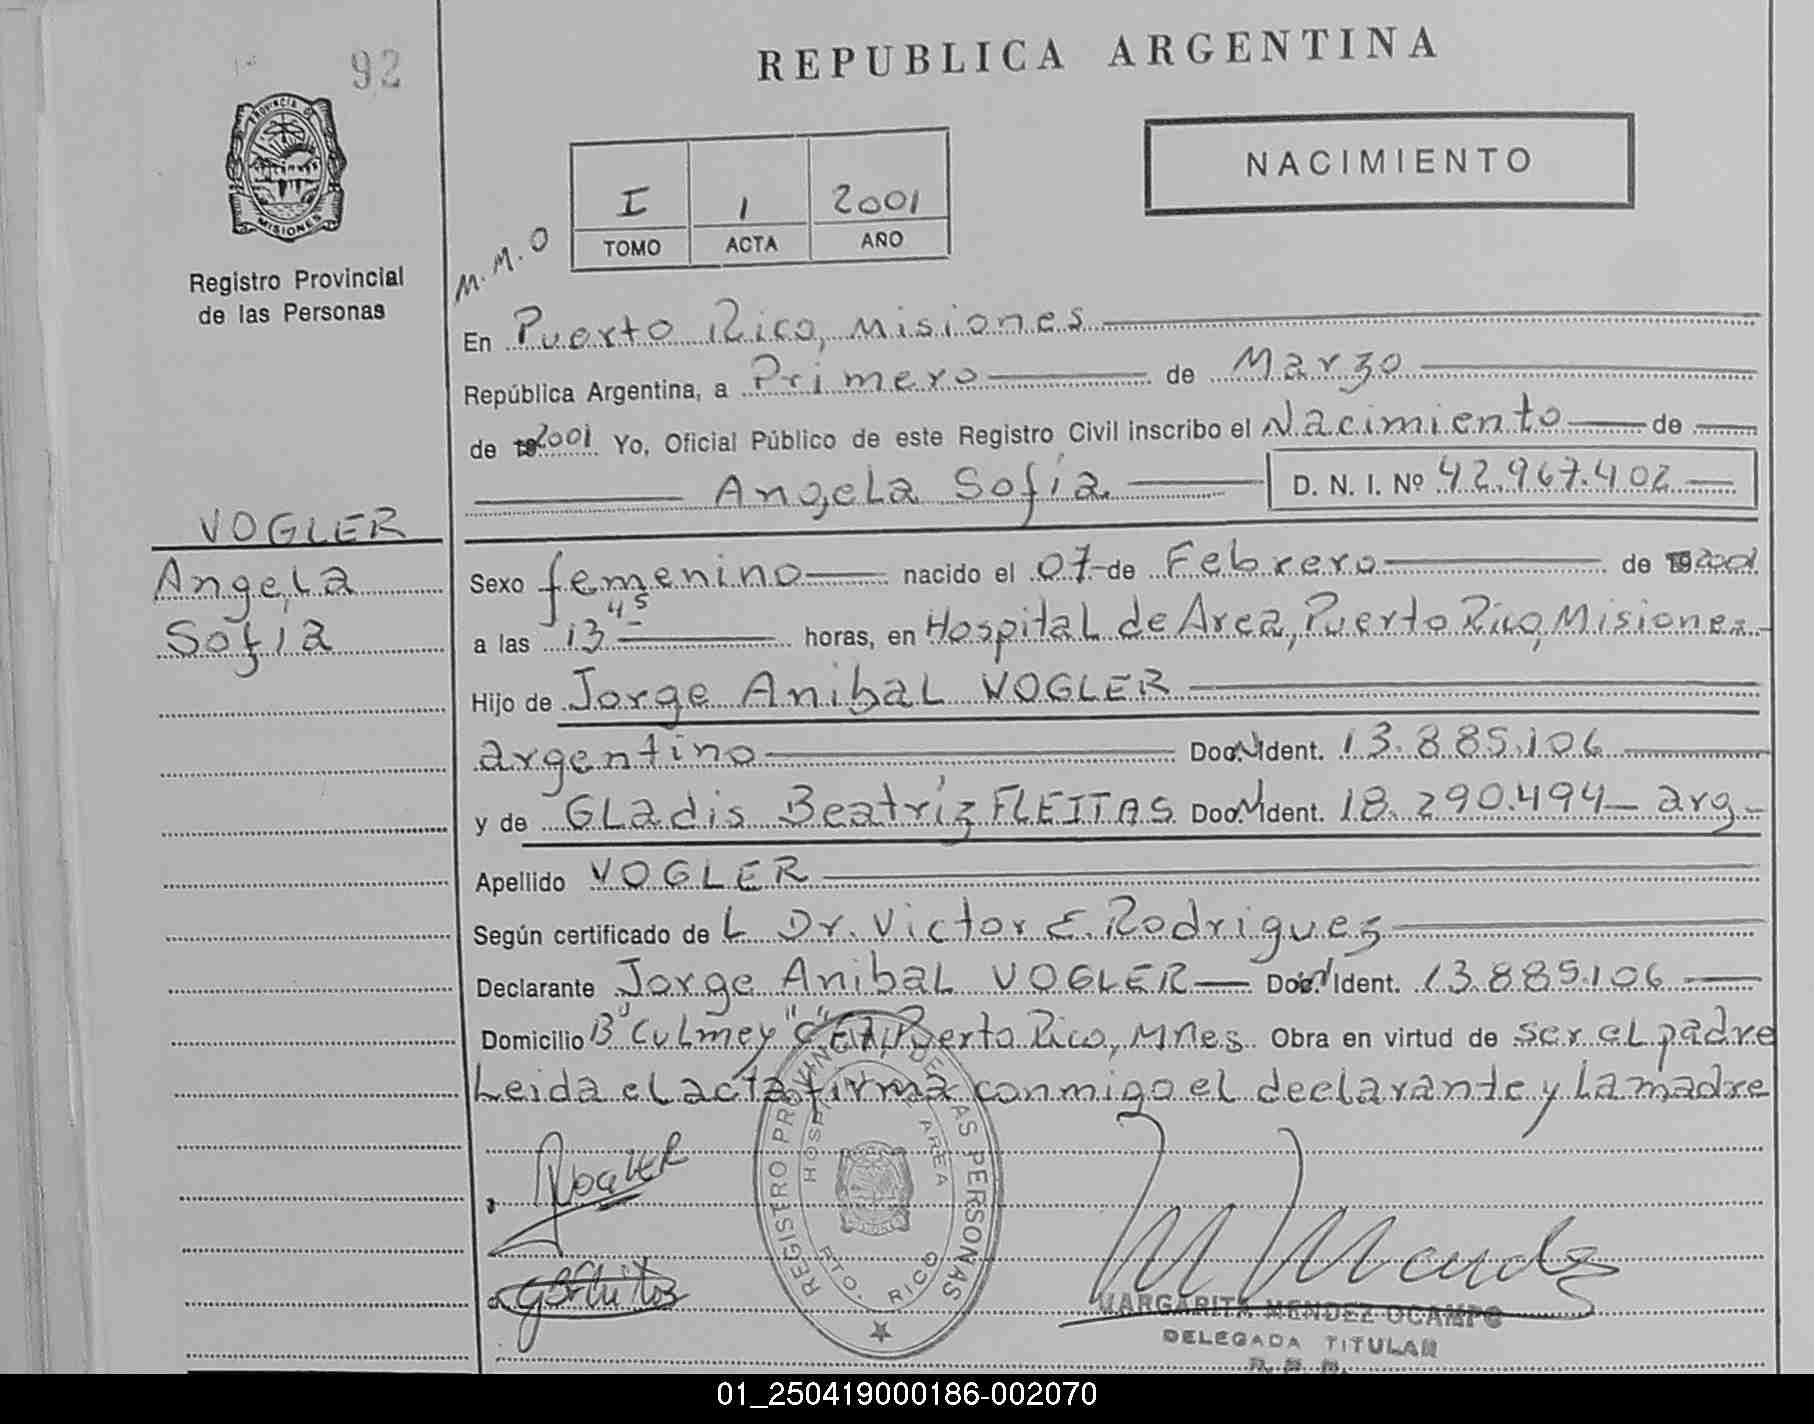 92
REPUBLICA ARGENTINA
PROVINCIA DE
MISIONES
Registro Provincial
de las Personas
I 1 2001
TOMO ACTA AÑO
NACIMIENTO
M.M.O
En Puerto Rico, Misiones
República Argentina, a Primero de Marzo
de 192001 Yo, Oficial Público de este Registro Civil inscribo el Nacimiento de
Angela Sofía D. N. I. Nº 42.967.402
VOGLER
Angela
Sofía
Sexo femenino nacido el 07 de Febrero de 192001
a las 13 45 horas, en Hospital de Area, Puerto Rico, Misiones
Hijo de Jorge Anibal VOGLER
argentino Doc. N Ident. 13.885.106
y de GLadis Beatríz FLEITAS Doc. N Ident. 18.290.494 arg
Apellido VOGLER
Según certificado de L Dr. Victor E. Rodriguez
Declarante Jorge Anibal VOGLER Doc. N Ident. 13.885.106
Domicilio Bº Culmey "C" Puerto Rico, Mnes. Obra en virtud de ser el padre
Leida el acta firma conmigo el declarante y la madre
REGISTRO PROVINCIAL DE LAS PERSONAS
HOSPITAL AREA
PTO. RICO
VOGLER
MARGARITA MENDEZ OCAMPO
DELEGADA TITULAR
01_250419000186-002070